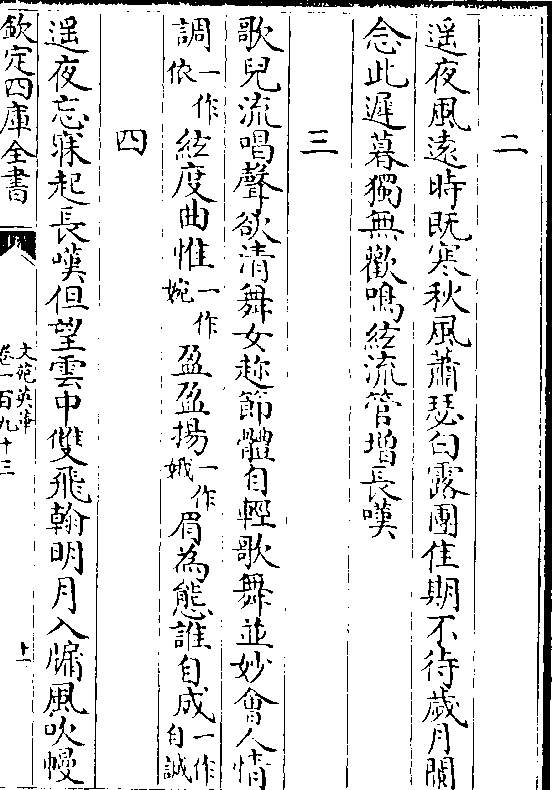 二
遥夜風遠時既寒秋風蕭瑟白露團佳期不待歲月闌
念此遲暮獨無歡鳴絃流管增長嘆
三
歌兒流唱聲欲清舞女趂節體自輕歌舞並妙會人情
調一作依絃度曲惟一作婉盈盈揚一作娥眉為態誰自成一作自誠
四
遥夜忘寐起長嘆但望雲中雙飛翰明月入牖風吹幔
欽定四庫全書
文苑英華
卷一百九十三
十一